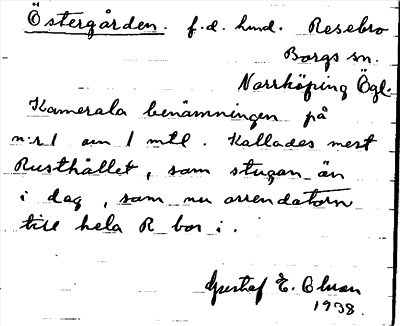 Östergården. f.d. hmd. Resebro
Borgs sn.
Norrköping Ögl.
Kamerala benämningen på
n:r 1 om 1 mtl. Kallades mest
Rusthållet, som stugan än
i dag, som nu arrendatorn
till hela R bor i.
Gustaf E. Olman
1938.